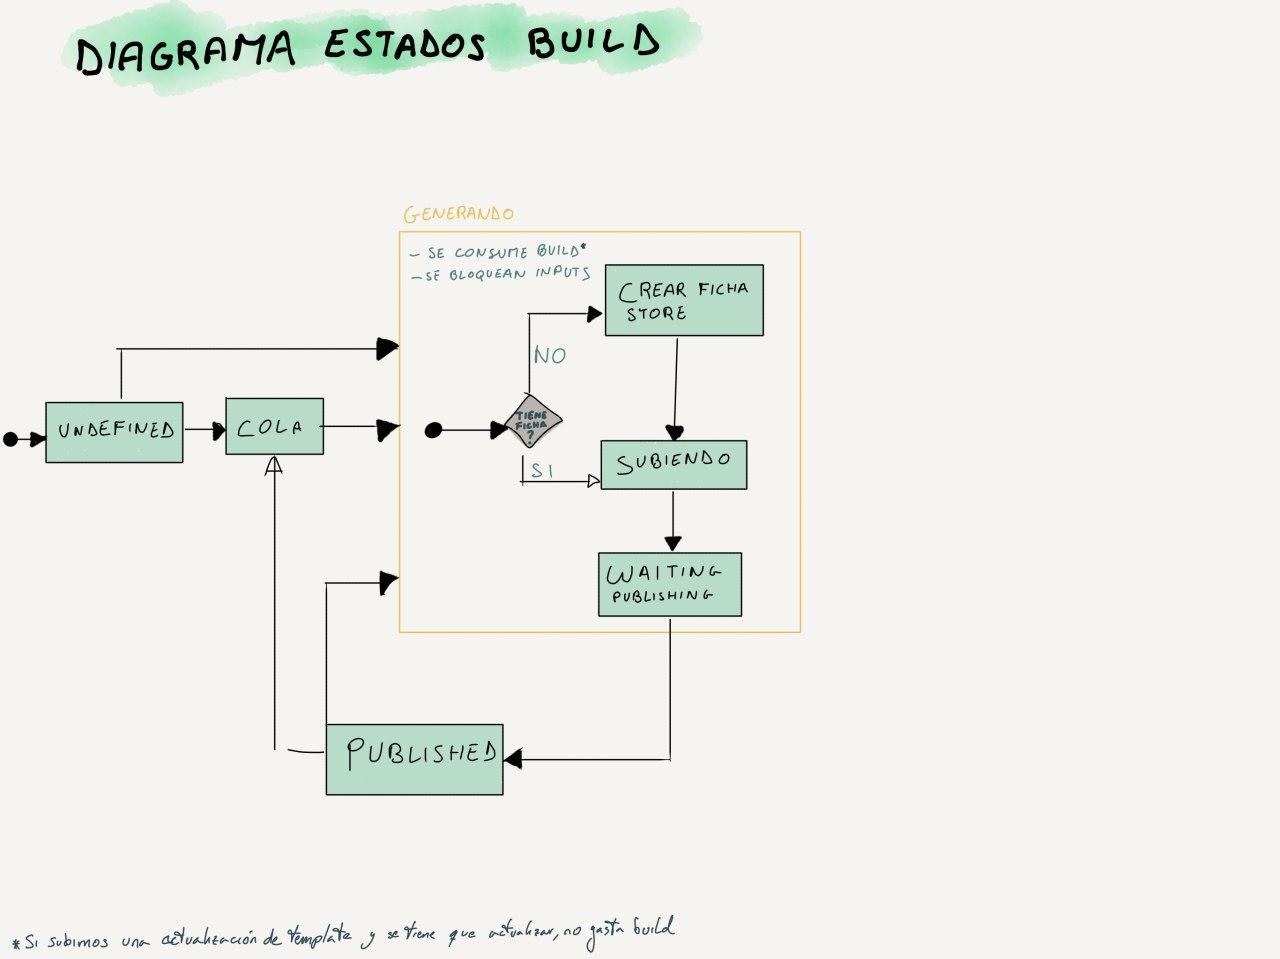 DIAGRAMA ESTADOS BUILD
GENERANDO
- SE CONSUME BUILD*
- SE BLOQUEAN INPUTS
CREAR FICHA
STORE
NO
UNDEFINED
COLA
TIENE
FICHA
?
SI
SUBIENDO
WAITING
PUBLISHING
PUBLISHED
*Si subimos una actualización de template y se tiene que actualizar, no gasta build